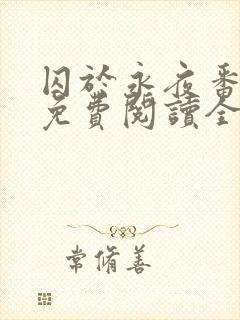 囚於永夜番
免費閱讀全
常脩善